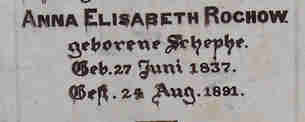 ANNA ELISABETH ROCHOW
geborene Schephe.
Geb. 27 Juni 1837.
Gest. 24 Aug. 1891.